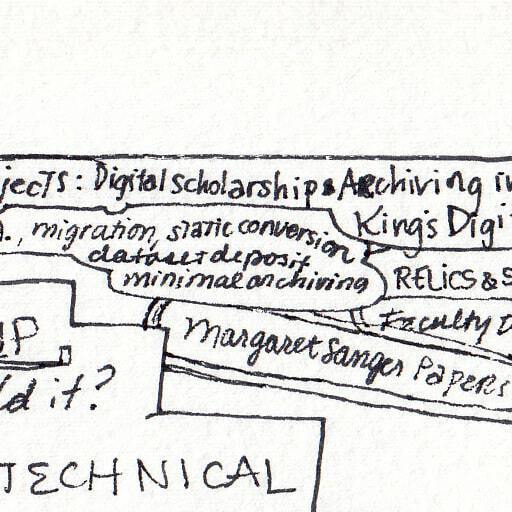 jects: Digital scholarship & Archiving in
King's Digi
., migration, static conversion
dataset deposit
minimal archiving
RELICS & S
Faculty D
Margaret Sanger Papers
UP
ld it?
TECHNICAL